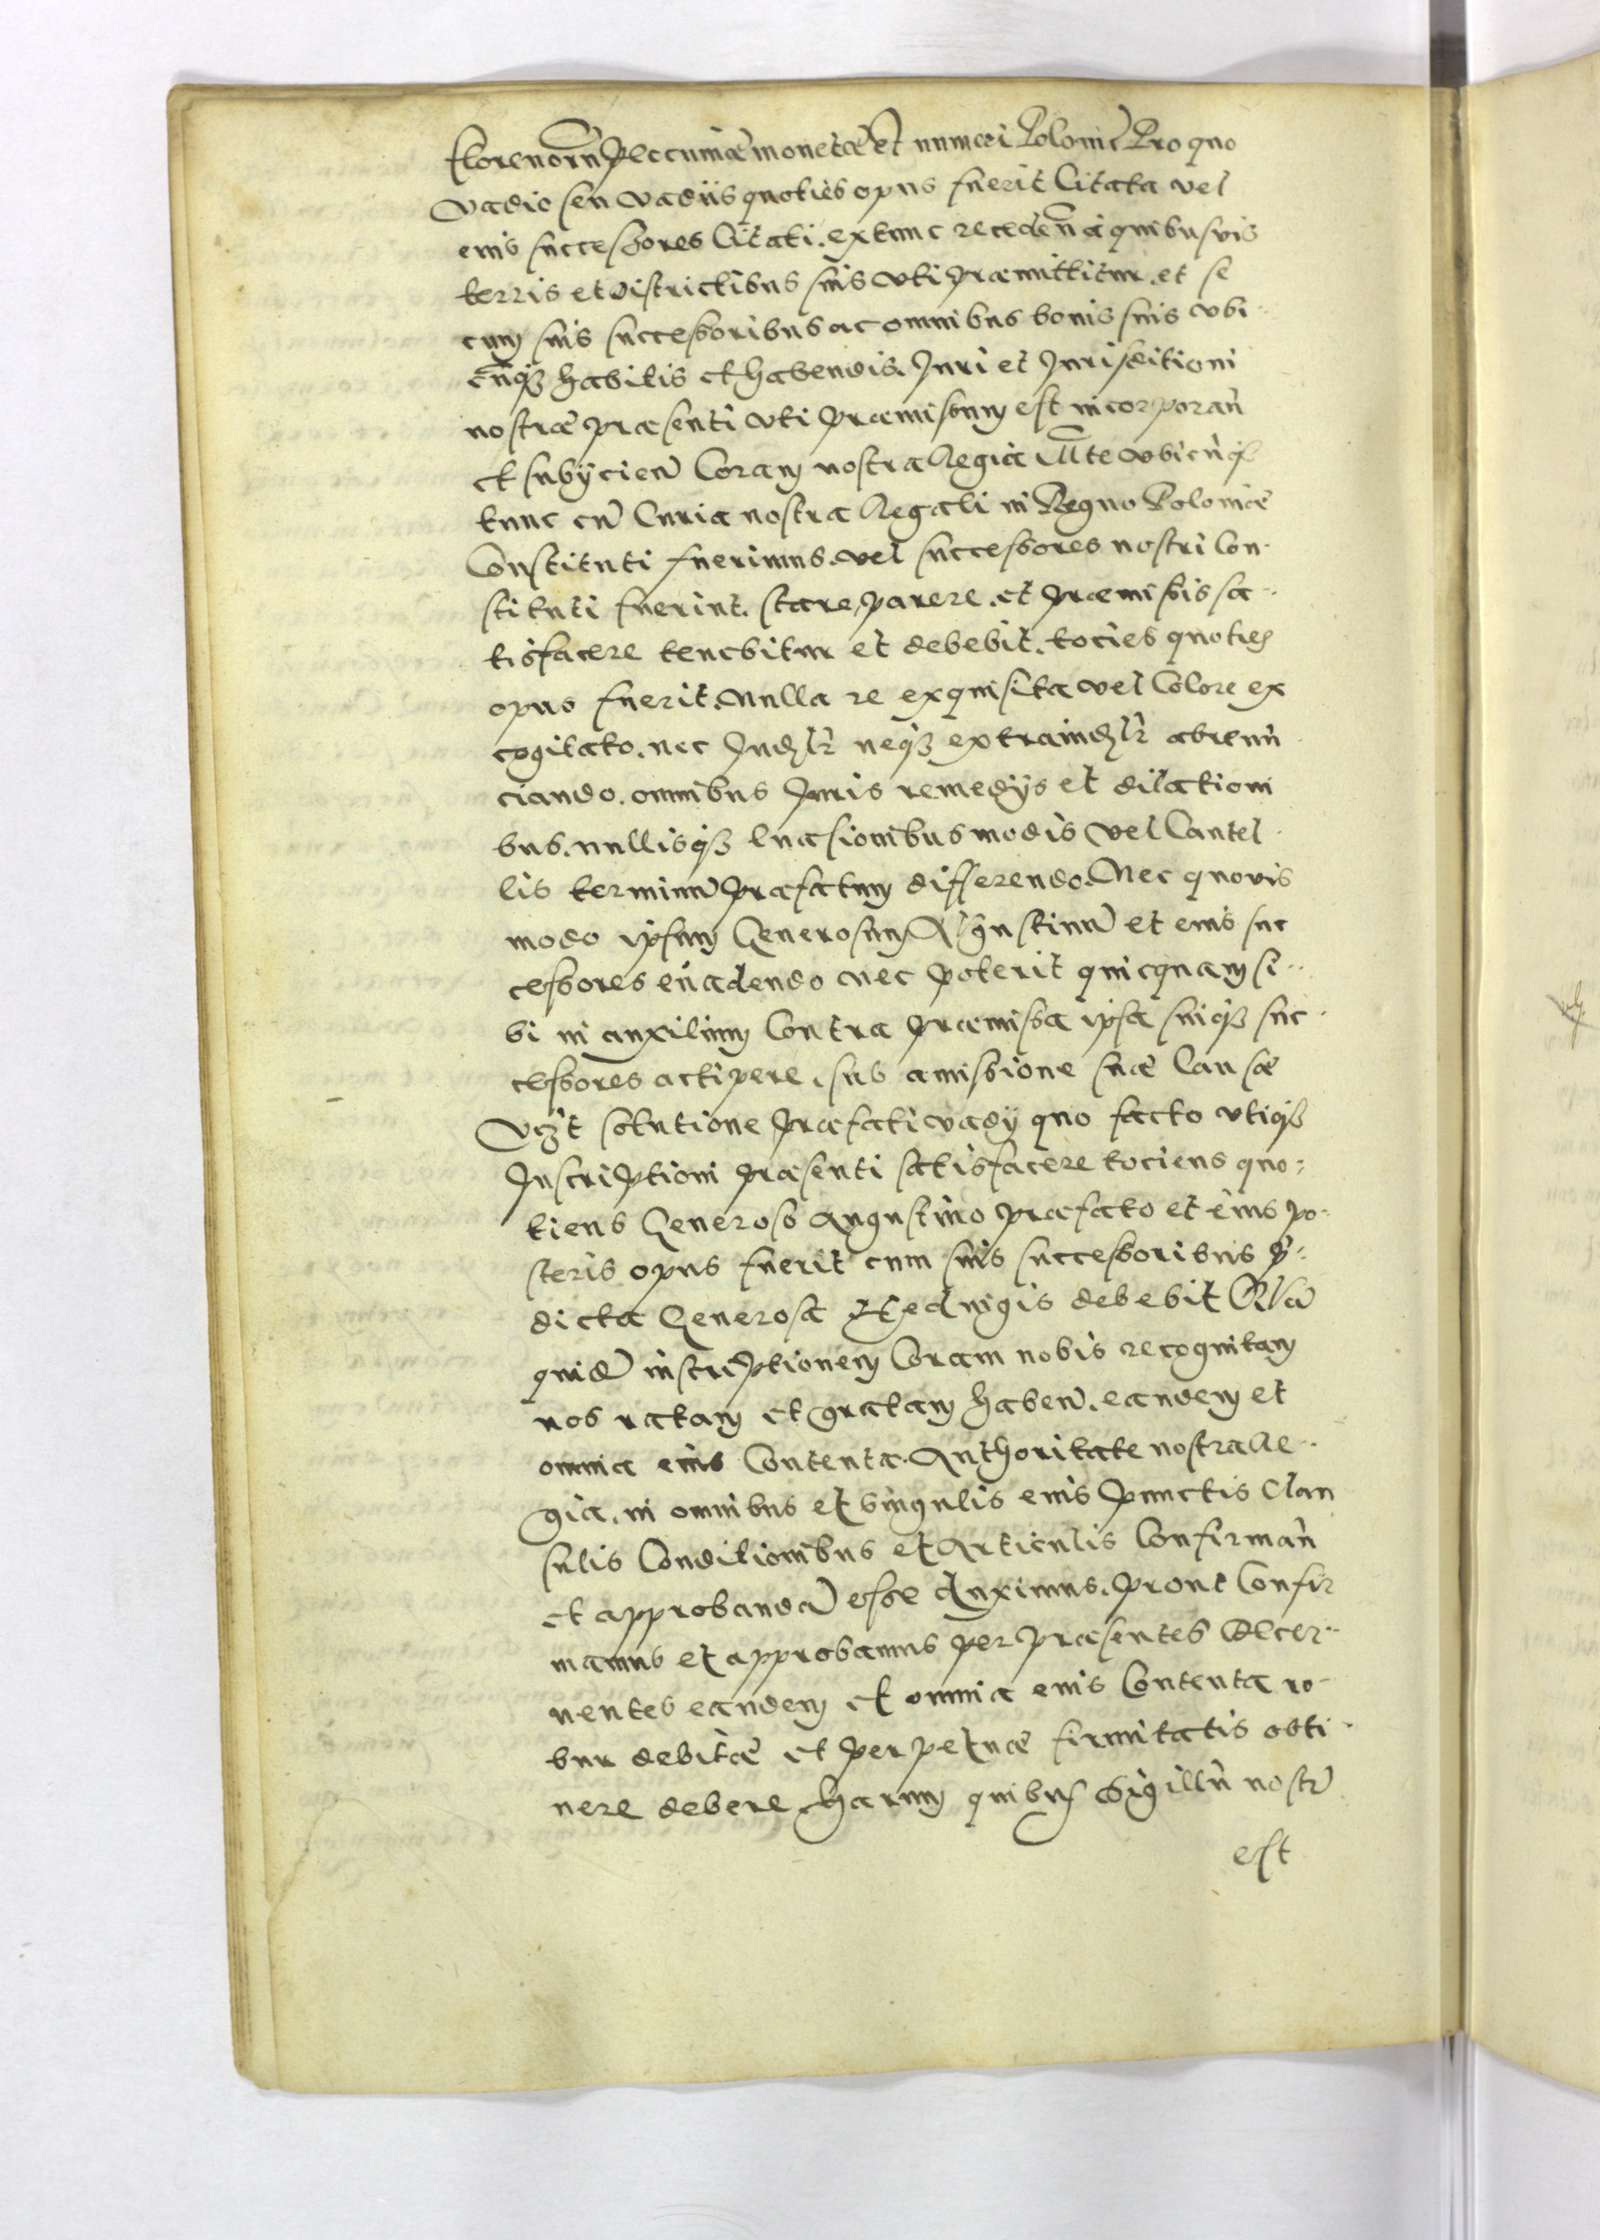 Florenorũ pecuniæ monetæ et numeri Poloniē Pro quo
vadio seu vadiis quoties opus fuerit Citata vel
eius successores Citati. extunc receden̄ à quibusvis
terris et districtibus suis uti præmittitur. et se
cum suis successoribus ac omnibus bonis suis ubi
cunq3 habitis et habendis. Juri et Jurisditioni
nostræ præsenti uti præmissum est incorporan̄
et subÿcien̄ Coram nostra Regia Mte ubicunq3
tunc cū Curia nostra Regali in Regno Poloniæ
Constituti fuerimus. vel successores nostri Con-
stituti fuerint. stare, parere. et præmissis sa-
tisfacere tenebitur et debebit. tocies quoties
opus fuerit. Nulla re exquisita vel Colore ex
cogitato. nec Jud lr neq3 extraiud lr abrenun̄
ciando. omnibus Juris remedÿs et dilationi
bus. nullisq3 Evasionibus modis vel Cautel
lis terminū præfatum differendo. Nec quovis
modo ipsum Generosum Augustinū et eius suc
cessores evadendo nec poterit quicquam si-
bi in auxilium Contra præmissa ipsa suiq3 suc-
cessores accipere. sub amissione suæ Causæ
Vz̄t solutione præfati vadÿ quo facto utiq3
Inscriptioni præsenti satisfacere tociens quo-
tiens Generoso Augustino præfato et eius po-
steris opus fuerit cum suis successoribus p̄-
dicta Generosa Hedvigis debebit Quā
quidē inscriptionem Coram nobis recognitam
nos ratam et gratam haben̄. eandem et
omnia eius Contenta. Authoritate nostra Re-
gia. in omnibus et singulis eius punctis Clau
sulis Conditionibus et Articulis Confirman̄
et approbandā esse duximus. prout Confir
mamus et approbamus per præsentes decer-
nentes eandem et omnia eius Contenta ro-
bur debitæ et perpetuæ firmitatis obti-
nere debere. Harum quibus Sigillū nostr̄
est